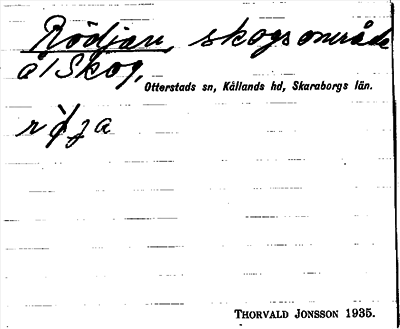 Rödjan, skogsområde
å/Skog,
Otterstads sn, Kållands hd, Skaraborgs län.
THORVALD JONSSON 1935.